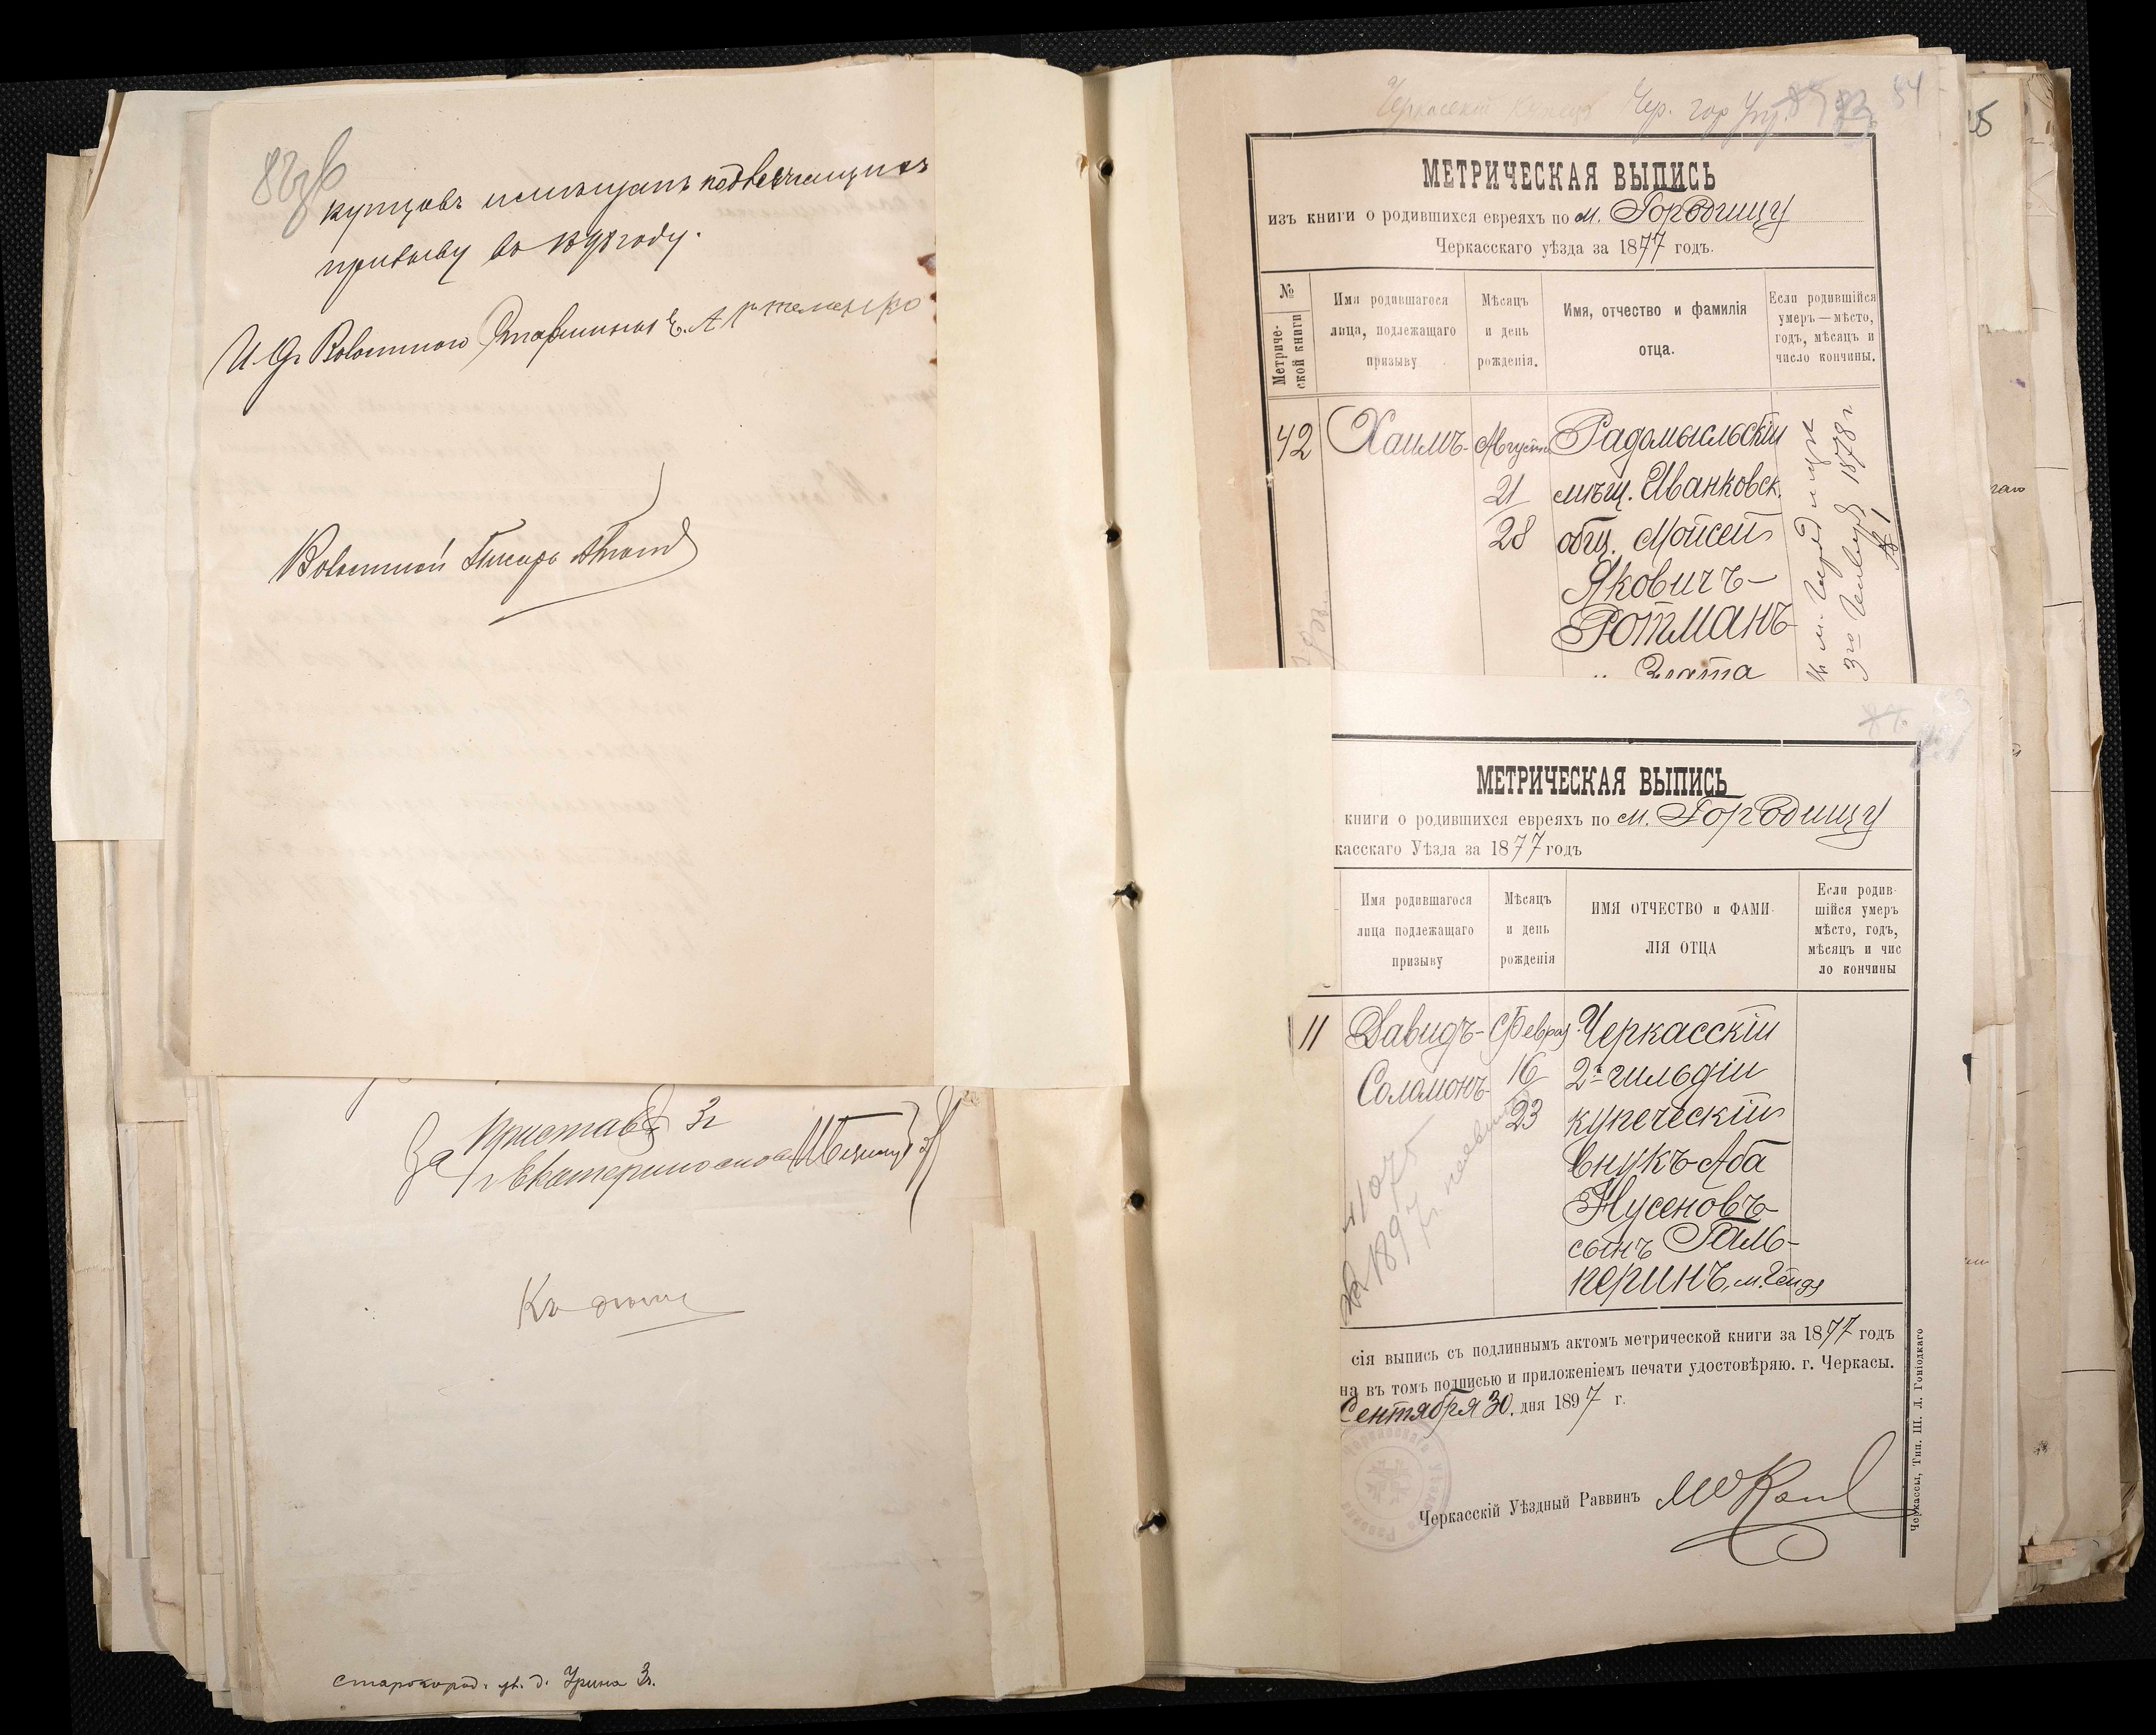 82 об
купцовъ и мѣщанъ подлежащихъ
призыву въ 1898 году.
И. д. Волостного Старшины Е. Артеменко
Волостной Писарь
За Пристава 3 г
г. Екатеринослава
Къ дѣлу
старогород. ул. д. Урина 3.
Черкасскій купецъ Чер. гор Упр. 84
МЕТРИЧЕСКАЯ ВЫПИСЬ
изъ книги о родившихся евреяхъ по м. Городищу
Черкасскаго уѣзда за 1877 годъ.
№ Метриче-ской книги
Имя родившагося лица, подлежащаго призыву
Мѣсяцъ и день рожденія.
Имя, отчество и фамилія отца.
Если родившійся умеръ — мѣсто, годъ, мѣсяцъ и число кончины.
42 Хаимъ Августа Радомысльскій
21 мѣщ. Иванковск.
28 общ. Мойсей
Яковичъ
Ротманъ
и Злата
въ м. Городищѣ
3го Января 1878 г
№ 1
МЕТРИЧЕСКАЯ ВЫПИСЬ
книги о родившихся евреяхъ по м. Городищу
касскаго Уѣзда за 1877 годъ
Имя родившагося лица подлежащаго призыву
Мѣсяцъ и день рожденія
ИМЯ ОТЧЕСТВО и ФАМИ-ЛІЯ ОТЦА
Если родив-шійся умеръ мѣсто, годъ, мѣсяцъ и чис ло кончины
11 Давидъ- Феврал Черкасскій
Соломонъ 16 2й гильдіи
23 купеческій
внукъ Аба
Нусеновъ
сынъ Галь-
перинъ, м. Гендя
сія выпись съ подлиннымъ актомъ метрической книги за 1877 годъ
на въ томъ подписью и приложеніемъ печати удостовѣряю. г. Черкасы.
Сентября 30. дня 1897 г.
Черкасскій Уѣздный Раввинъ
Черкассы, Тип. Ш. Л. Гоніодкаго